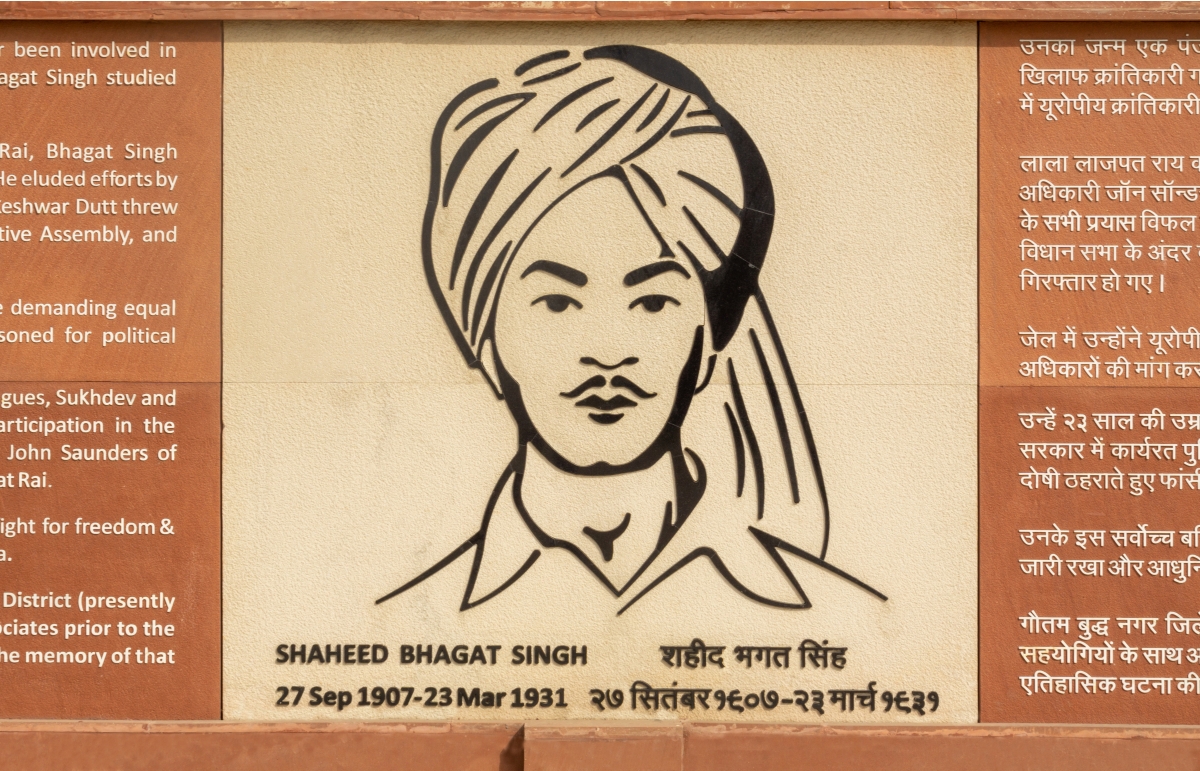 been involved in
Singh studied
Rai, Bhagat Singh
He eluded efforts by
Dutt threw
Assembly, and
demanding equal
for political
Sukhdev and
in the
John Saunders of
Rai.
for freedom &
District (presently
prior to the
the memory of that
SHAHEED BHAGAT SINGH
27 Sep 1907-23 Mar 1931
शहीद भगत सिंह
२७ सितंबर १९०७-२३ मार्च १९३१
उनका जन्म एक
खिलाफ क्रांतिकारी
में यूरोपीय क्रांतिकारी
लाला लाजपत राय
अधिकारी जॉन
के सभी प्रयास विफल
विधान सभा के अंदर
गिरफ्तार हो गए।
जेल में उन्होंने
अधिकारों की मांग
उन्हें २३ साल की
सरकार में कार्यरत
दोषी ठहराते हुए
उनके इस सर्वोच्च
जारी रखा और
गौतम बुद्ध नगर
सहयोगियों के साथ
एतिहासिक घटना की